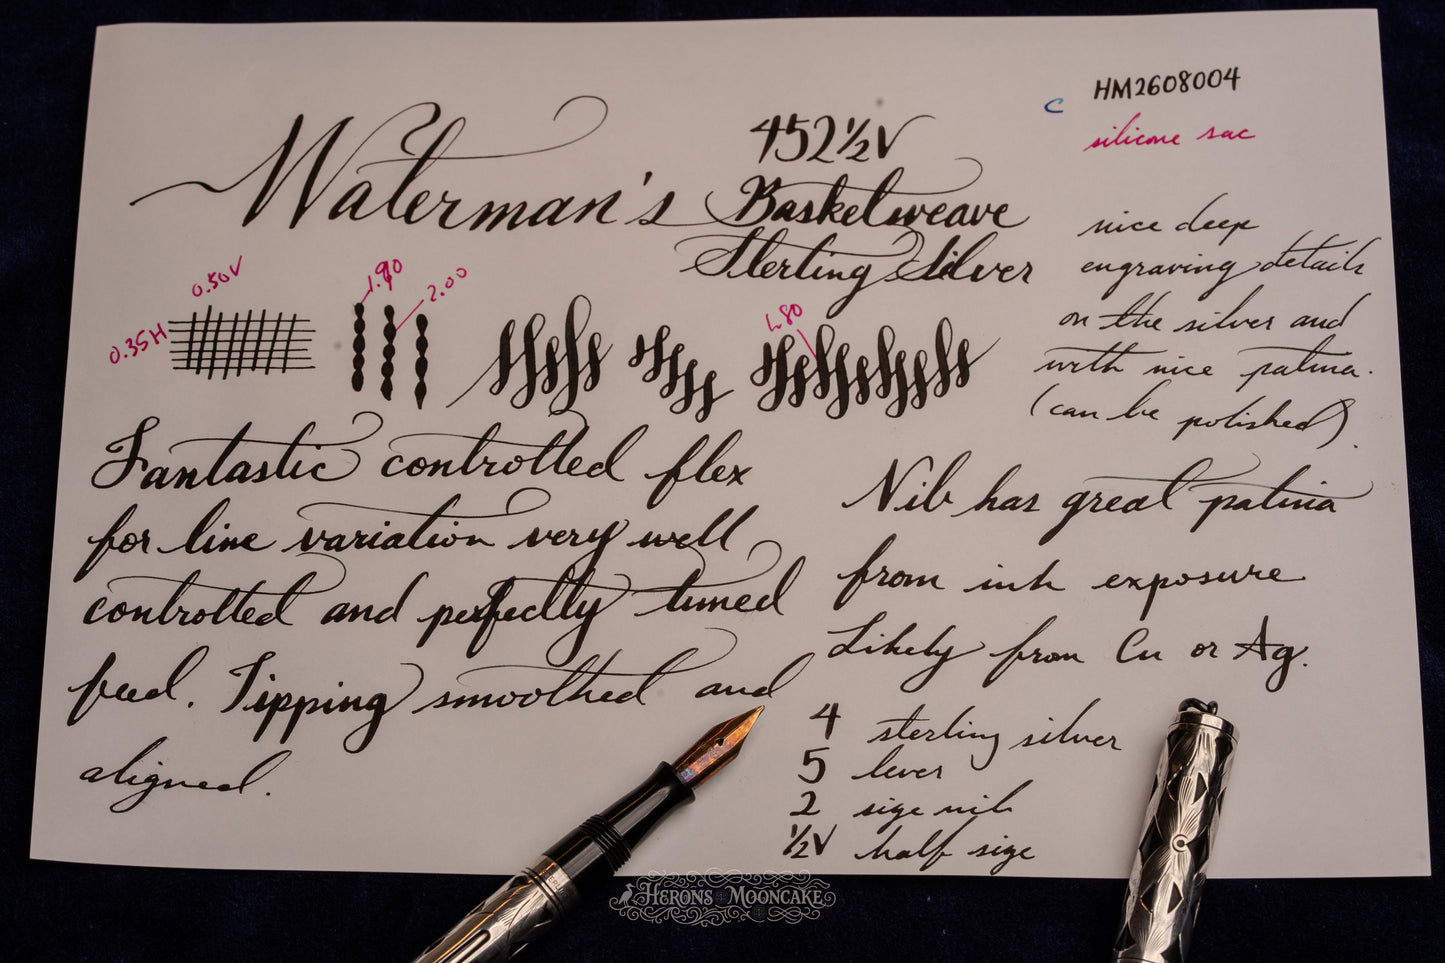 HM2608004
C
silicone sac
Waterman's
452½V
Basketweave
Sterling Silver
0.50V
0.35H
1.90
2.00
1.80
nice deep
engraving details
on the silver and
with nice patina.
(can be polished).
Fantastic controlled flex
for line variation very well
controlled and perfectly tuned
feed. Tipping smoothed and
aligned.
Nib has great patina
from ink exposure
Likely from Cu or Ag.
4 sterling silver
5 lever
2 size nib
½V half size
HERONS MOONCAKE